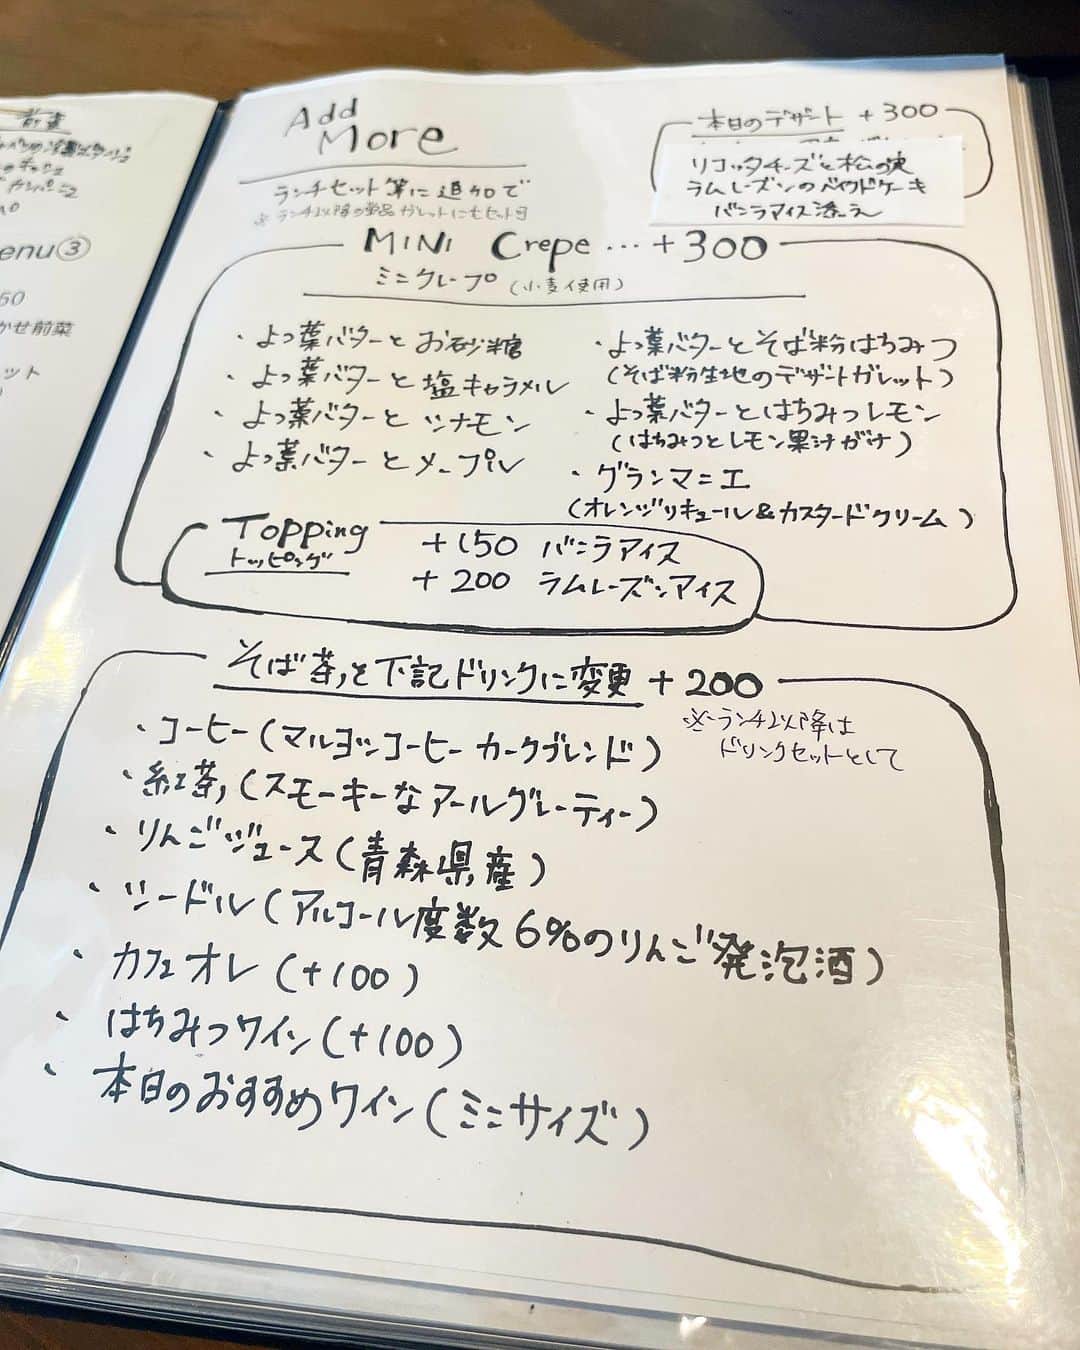 前菜
enu③
50
かせ前菜
ット
Add
More
ランチセット等に追加で
※ランチ以降の単品ガレットにもセット可
本日のデザート +300
リコッタチーズと松の実
ラムレーズンのパウンドケーキ
バニラアイス添え
MINI Crepe…+300
ミニクレープ (小麦使用)
・よつ葉バターとお砂糖
・よつ葉バターと塩キャラメル
・よつ葉バターとシナモン
・よつ葉バターとメープル
・よつ葉バターとそば粉はちみつ
(そば粉生地のデザートガレット)
・よつ葉バターとはちみつレモン
(はちみつとレモン果汁がけ)
・グランマニエ
(オレンジリキュール&カスタードクリーム)
Topping
トッピング
+150 バニラアイス
+200 ラムレーズンアイス
そば茶を下記ドリンクに変更 +200
※ランチ以降は
ドリンクセットとして
・コーヒー(マルヨシコーヒー カークブレンド)
・紅茶(スモーキーなアールグレーティー)
・りんごジュース(青森県産)
・シードル(アルコール度数6%のりんご発泡酒)
・カフェオレ(+100)
・はちみつワイン(+100)
・本日のおすすめワイン(ミニサイズ)